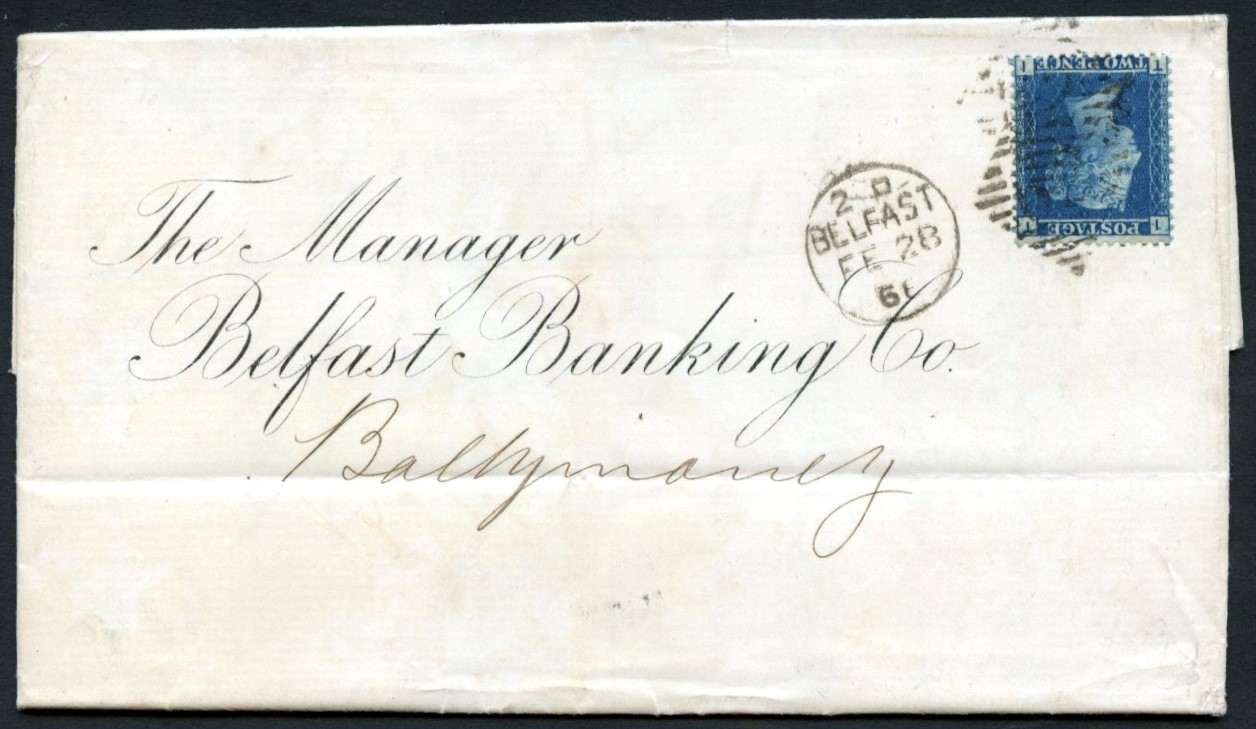 The Manager
Belfast Banking Co.
Ballymoney
2 P
BELFAST
FE 28
TWO PENCE
POSTAGE